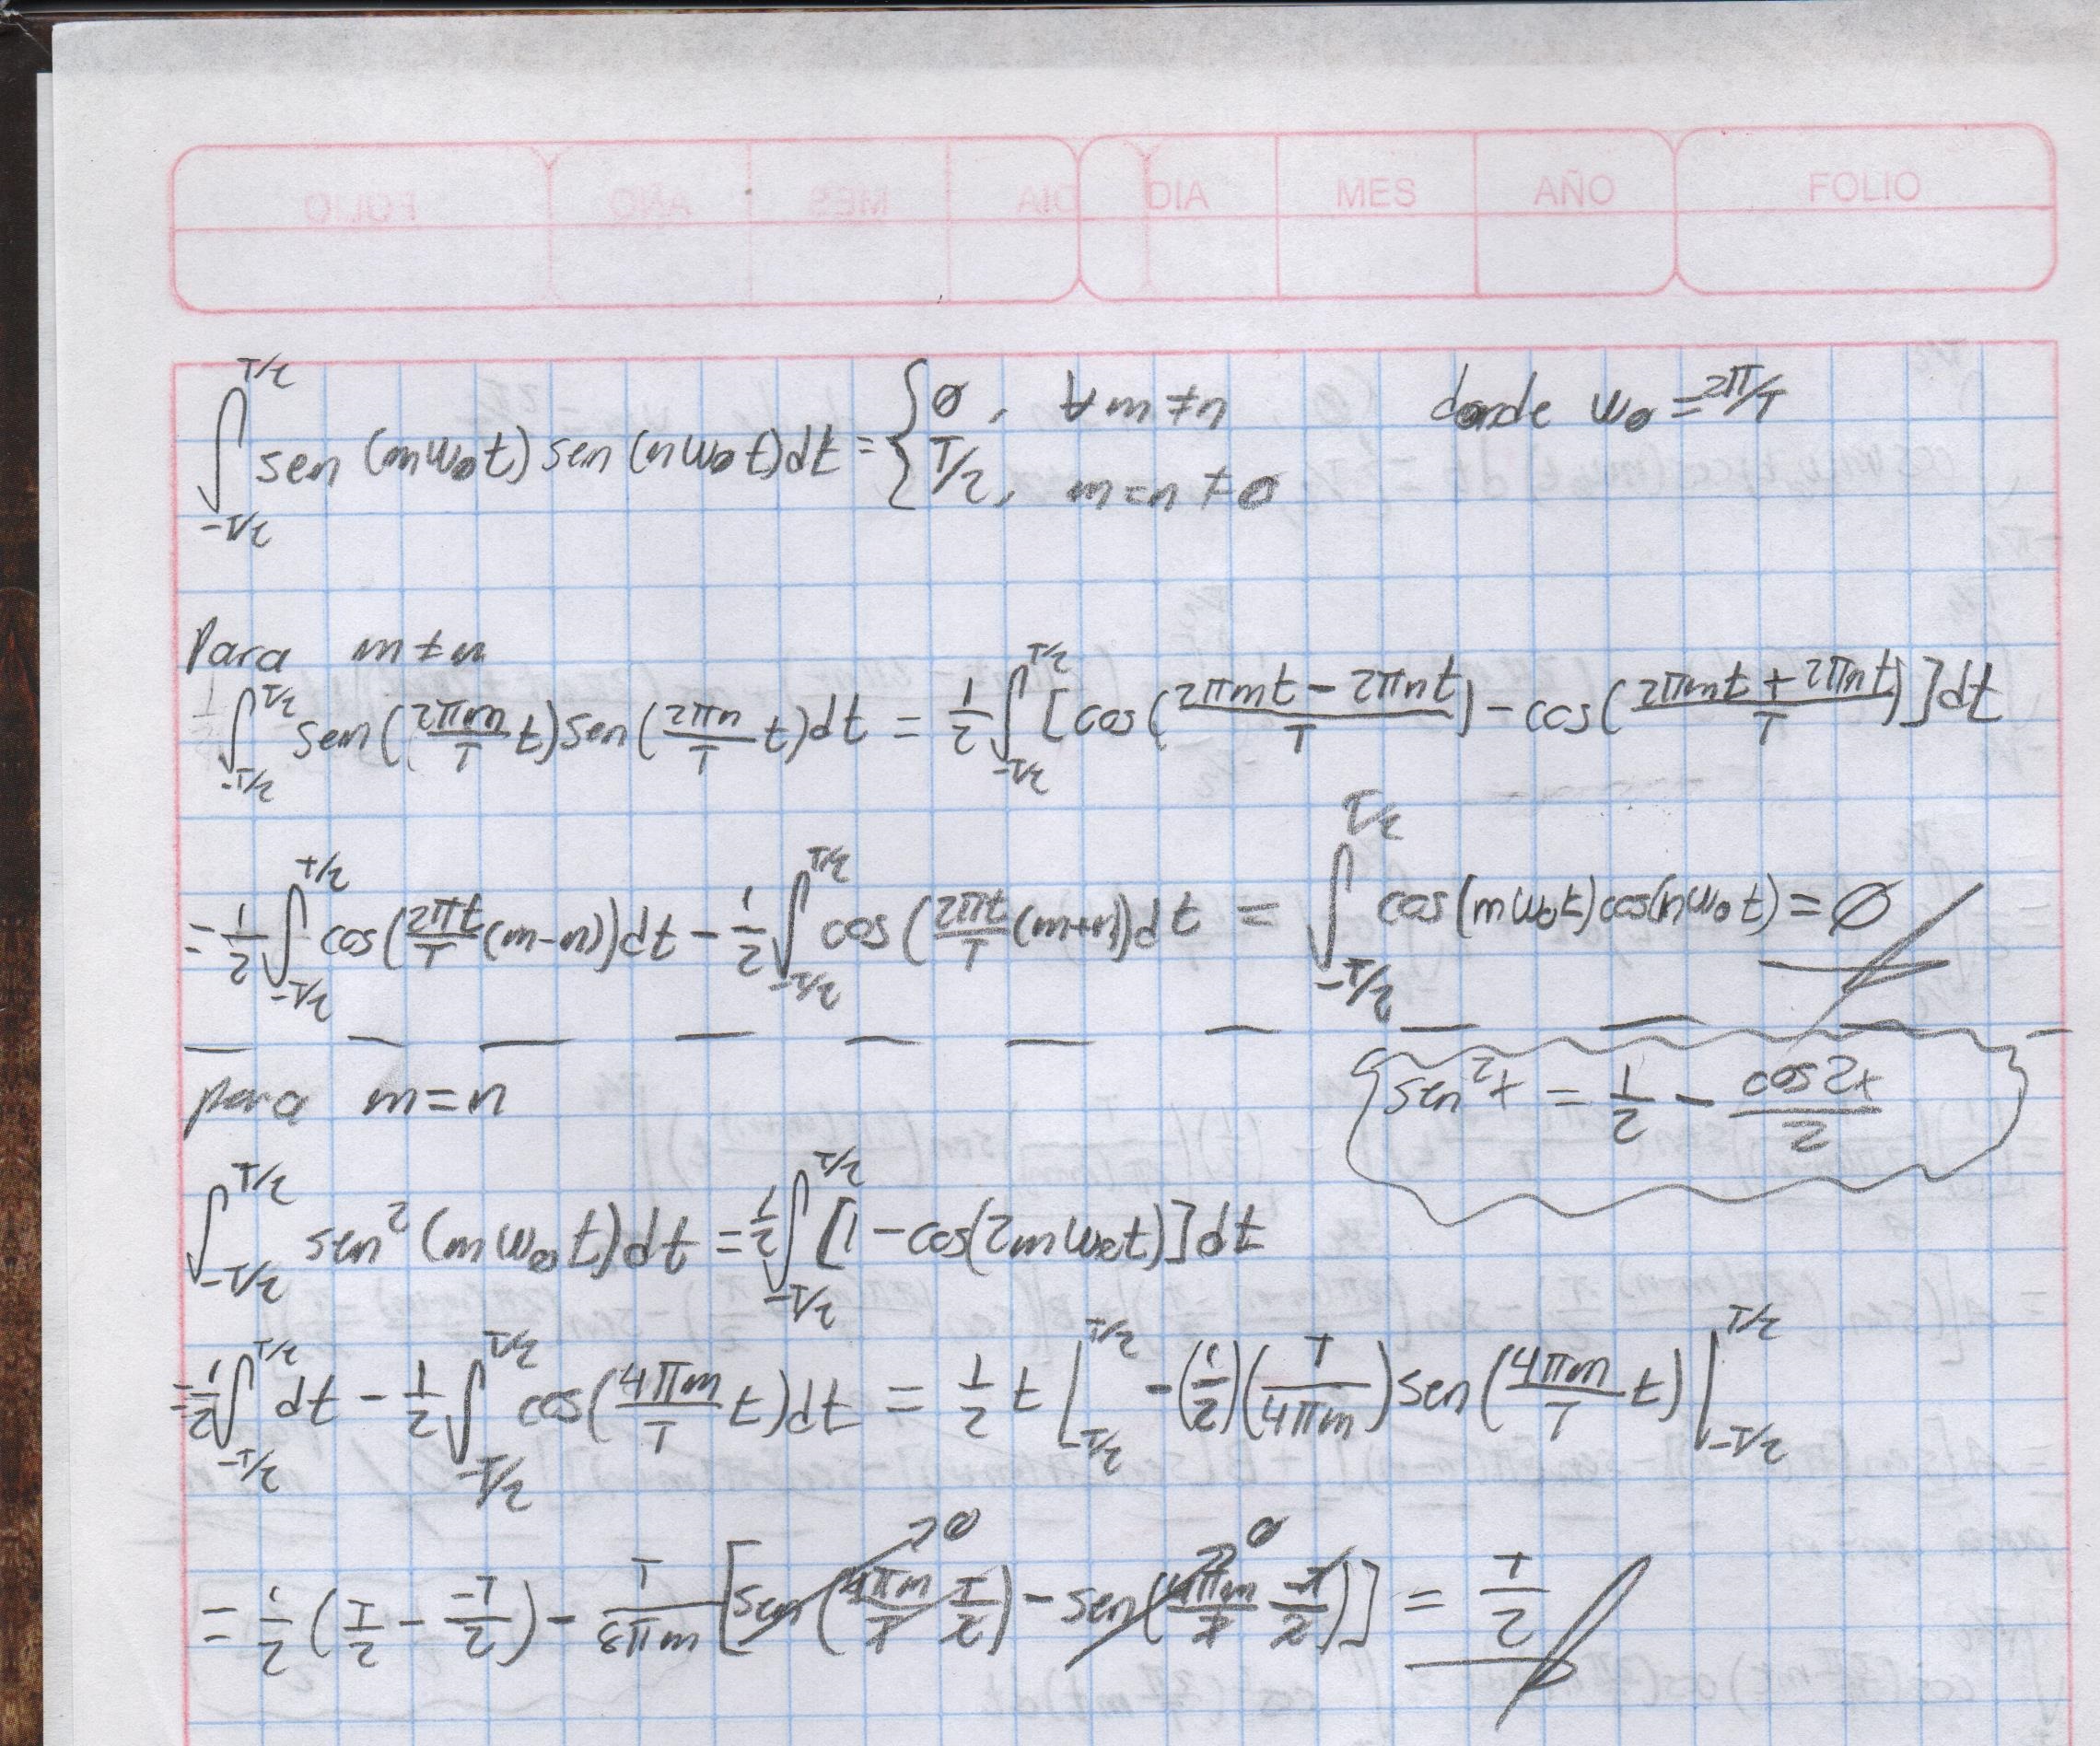 DIA MES AÑO FOLIO
∫_{-T/2}^{T/2} sen (mω₀t) sen (nω₀t)dt = { 0, ∀ m ≠ n donde ω₀ = 2π/T
T/2, m = n ≠ 0
Para m ≠ n
∫_{-T/2}^{T/2} sen(2πm/T t)sen(2πn/T t)dt = 1/2 ∫_{-T/2}^{T/2} [cos((2πmt - 2πnt)/T) - cos((2πmt + 2πnt)/T)]dt
= 1/2 ∫_{-T/2}^{T/2} cos(2πt/T (m-n))dt - 1/2 ∫_{-T/2}^{T/2} cos(2πt/T (m+n))dt = ∫_{-T/2}^{T/2} cos(mω₀t)cos(nω₀t) = 0
para m = n
sen²x = 1/2 - cos2x/2
∫_{-T/2}^{T/2} sen²(mω₀t)dt = 1/2 ∫_{-T/2}^{T/2} [1 - cos(2mω₀t)]dt
= 1/2 ∫_{-T/2}^{T/2} dt - 1/2 ∫_{-T/2}^{T/2} cos(4πm/T t)dt = 1/2 t |_{-T/2}^{T/2} - (1/2)(T/4πm)sen(4πm/T t)|_{-T/2}^{T/2}
= 1/2 (T/2 - -T/2) - T/8πm [sen(4πm/T T/2)→0 - sen(4πm/T -T/2)→0] = T/2